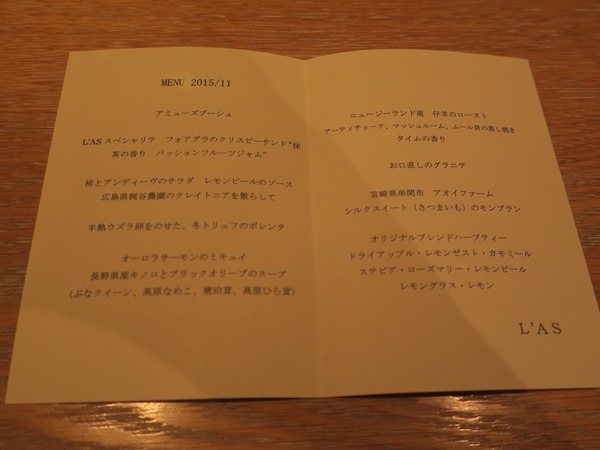 MENU 2015/11
アミューズブーシュ
L'AS スペシャリテ　フォアグラのクリスピーサンド"抹
茶の香り　パッションフルーツジャム"
柿とアンディーヴのサラダ　レモンピールのソース
広島県梶谷農園のクレイトニアを散らして
半熟ウズラ卵をのせた、冬トリュフのポレンタ
オーロラサーモンのミキュイ
長野県産キノコとブラックオリーブのスープ
(ぶなクイーン、高原なめこ、琥珀茸、高原ひら茸)
ニュージーランド産　仔羊のロースト
アーティチョーク、マッシュルーム、ムール貝の蒸し焼き
タイムの香り
お口直しのグラニテ
宮崎県串間市　アオイファーム
シルクスイート（さつまいも）のモンブラン
オリジナルブレンドハーブティー
ドライアップル・レモンゼスト・カモミール
ステビア・ローズマリー・レモンピール
レモングラス・レモン
L'AS